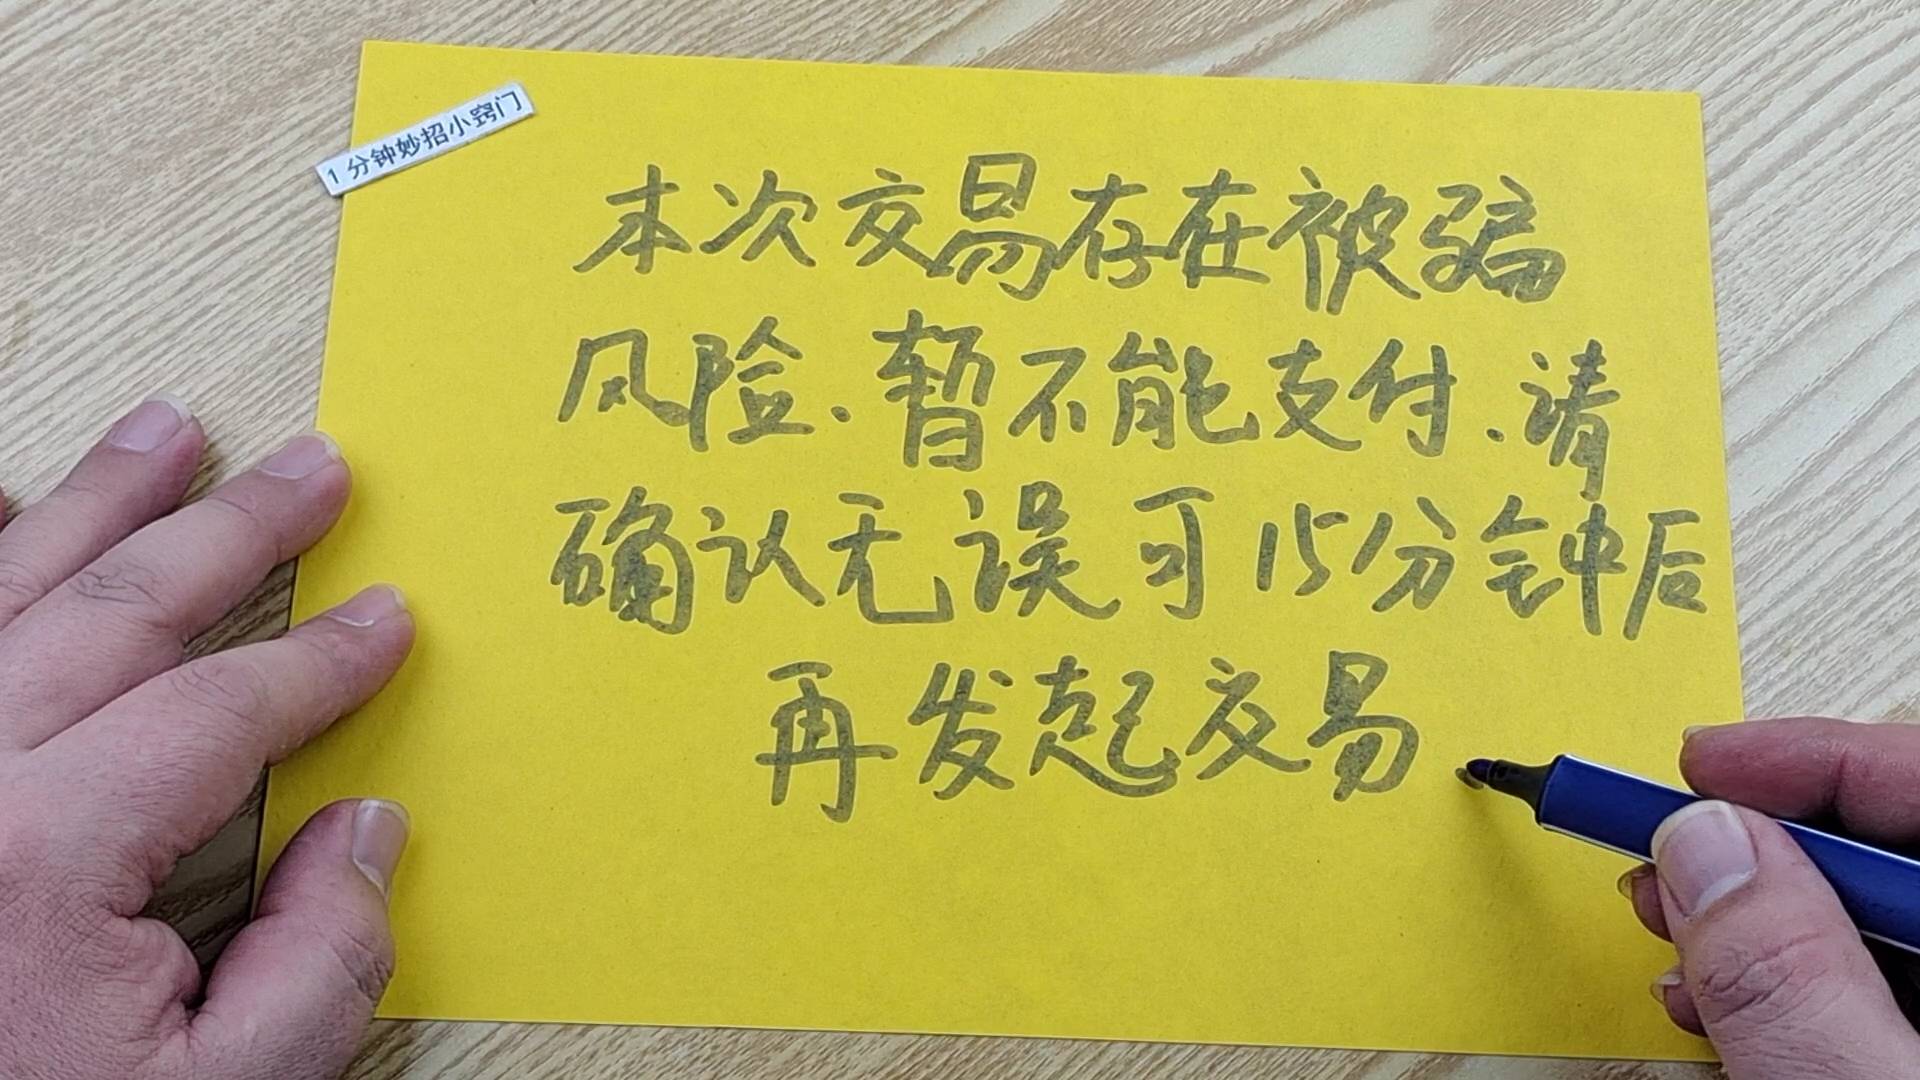 1分钟妙招小窍门
本次交易存在被骗
风险.暂不能支付.请
确认无误可15分钟后
再发起交易